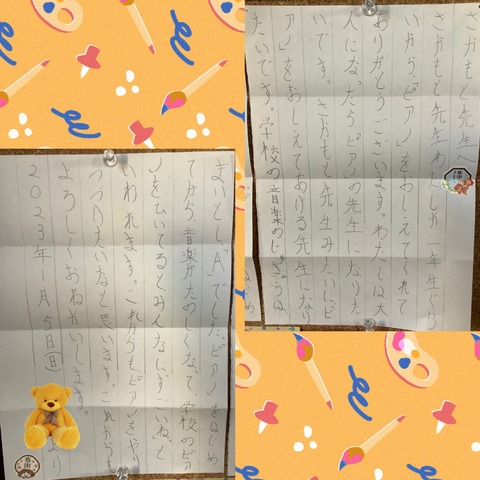 さかもと先生へ
さかもと先生わたしが一年生ぐら
いから、ピアノをおしえてくれて
ありがとうございます。わたしは大
人になったらピアノの先生になりた
いです。さかもと先生みたいにピ
アノをおしえてあげる先生になり
たいです。学校の音楽のじぎょうは
感謝
まいとし「A」でした。ピアノをはじめ
てから、音楽がたのしくなって、学校のピア
ノをひいてるとみんなにすごいねと
いわれます。これからもピアノをやり
つづけたいなと思います。これからも
よろしくおねがいします。
2023年1月5日㊐ より
感謝